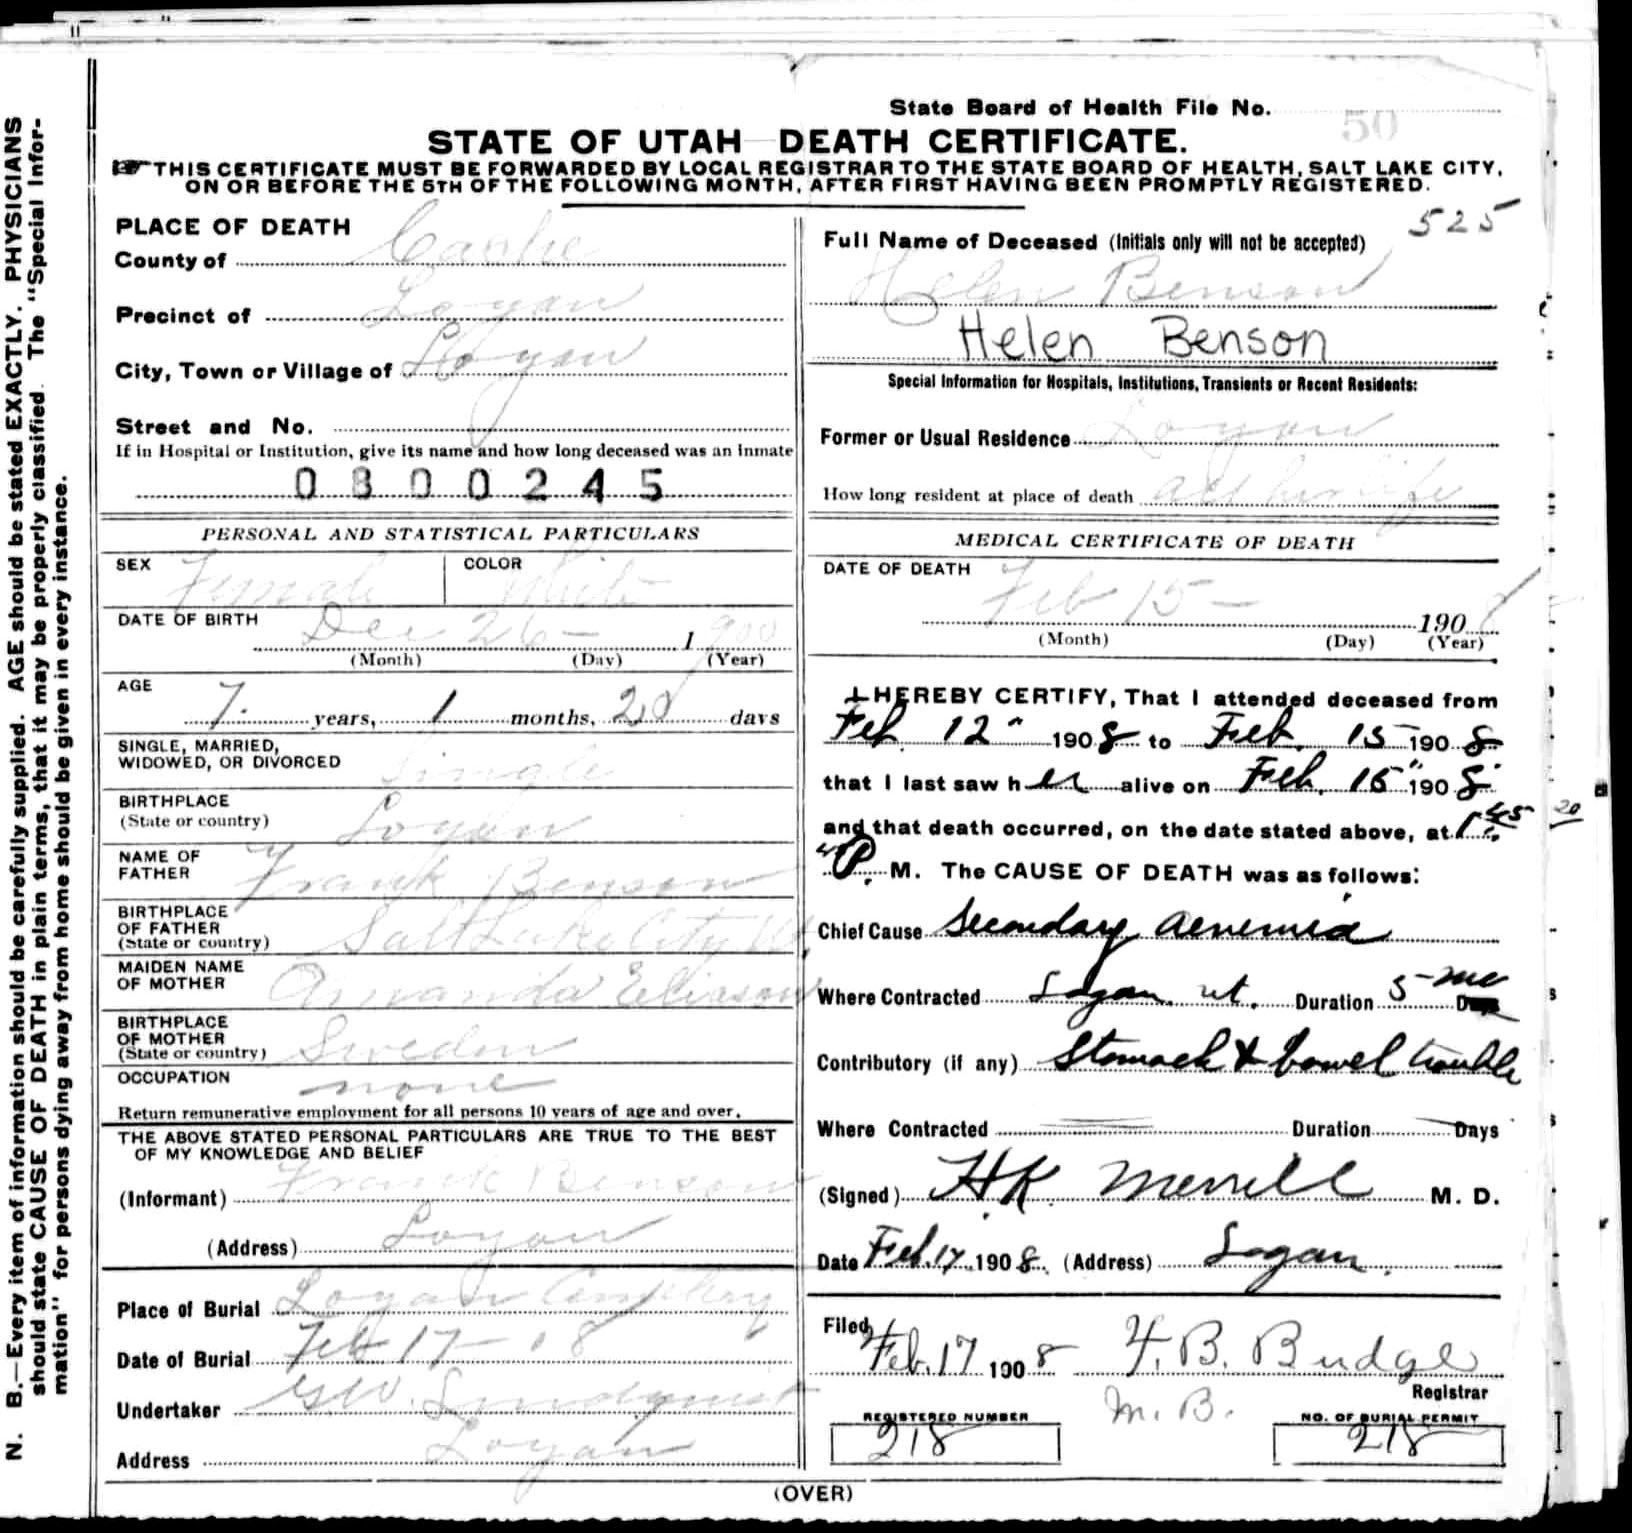 State Board of Health File No. 50
STATE OF UTAH—DEATH CERTIFICATE.
THIS CERTIFICATE MUST BE FORWARDED BY LOCAL REGISTRAR TO THE STATE BOARD OF HEALTH, SALT LAKE CITY,
ON OR BEFORE THE 5TH OF THE FOLLOWING MONTH, AFTER FIRST HAVING BEEN PROMPTLY REGISTERED.
N. B.—Every item of information should be carefully supplied. AGE should be stated EXACTLY. PHYSICIANS
should state CAUSE OF DEATH in plain terms, that it may be properly classified. The "Special Infor-
mation" for persons dying away from home should be given in every instance.
PLACE OF DEATH
County of Cache
Precinct of Logan
City, Town or Village of Logan
Street and No.
If in Hospital or Institution, give its name and how long deceased was an inmate
0800245
PERSONAL AND STATISTICAL PARTICULARS
SEX Female COLOR White
DATE OF BIRTH Dec 26 — 1900
(Month) (Day) (Year)
AGE
7 years, 1 months, 20 days
SINGLE, MARRIED,
WIDOWED, OR DIVORCED Single
BIRTHPLACE
(State or country) Logan
NAME OF
FATHER Frank Benson
BIRTHPLACE
OF FATHER
(State or country) Salt Lake City Ut.
MAIDEN NAME
OF MOTHER Amanda Eliason
BIRTHPLACE
OF MOTHER
(State or country) Sweden
OCCUPATION none
Return remunerative employment for all persons 10 years of age and over.
THE ABOVE STATED PERSONAL PARTICULARS ARE TRUE TO THE BEST
OF MY KNOWLEDGE AND BELIEF
(Informant) Frank Benson
(Address) Logan
Place of Burial Logan Cemetery
Date of Burial Feb 17 - 08
Undertaker G W. Lindquist
Address Logan
525
Full Name of Deceased (Initials only will not be accepted)
Helen Benson
Helen Benson
Special Information for Hospitals, Institutions, Transients or Recent Residents:
Former or Usual Residence Logan
How long resident at place of death all her life
MEDICAL CERTIFICATE OF DEATH
DATE OF DEATH
Feb 15 — 1908
(Month) (Day) (Year)
I HEREBY CERTIFY, That I attended deceased from
Feb. 12" 1908 to Feb. 15 1908
that I last saw her alive on Feb. 15" 1908
and that death occurred, on the date stated above, at 1:45
P. M. The CAUSE OF DEATH was as follows:
Chief Cause Secondary Aenemia
Where Contracted Logan ut. Duration 5 mo
Contributory (if any) Stomach & bowel trouble
Where Contracted Duration Days
(Signed) H.K. Merrill M. D.
Date Feb. 17 1908. (Address) Logan.
Filed
Feb. 17 1908 F. B. Budge
Registrar
M. B.
REGISTERED NUMBER
218
NO. OF BURIAL PERMIT
218
(OVER)